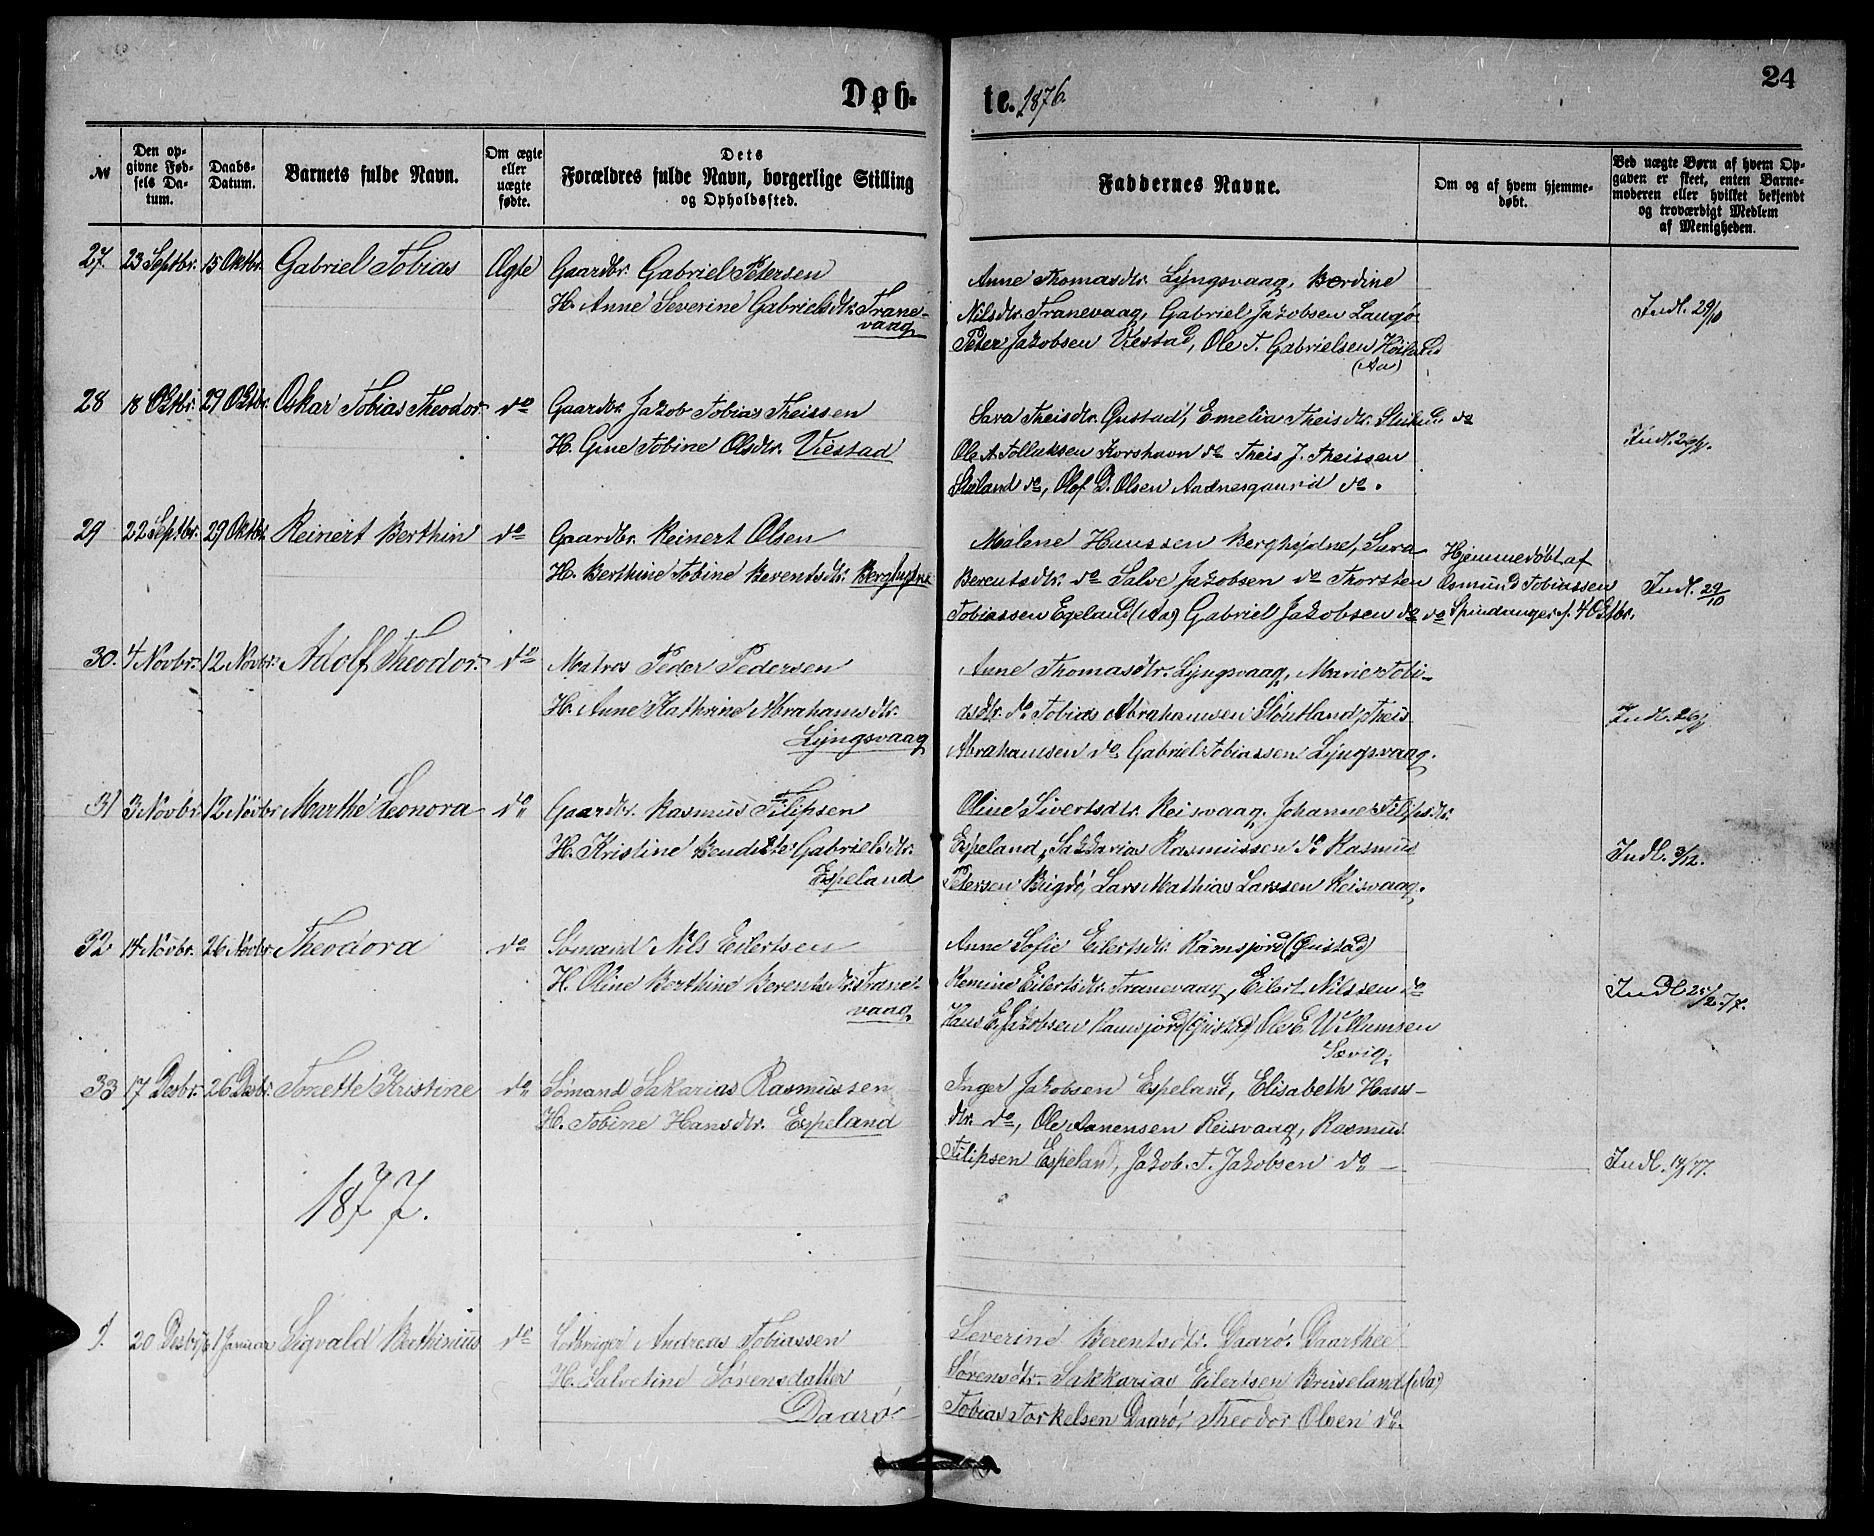 Døb-
te. 1876.
24
№
Den opgivne Fødsels Datum.
Daabs-Datum.
Barnets fulde Navn.
Om ægte eller uægte fødte.
Dets
Forældres fulde Navn, borgerlige Stilling
og Opholdssted.
Faddernes Navne.
Om og af hvem hjemmedøbt.
Ved uægte Børn af hvem Opgaven er skeet, enten Barnemoderen eller hvilket bekjendt og troværdigt Medlem af Menigheden.
27. 23 Septbr. 15 Oktbr. Gabriel Tobias Ægte Gaardbr. Gabriel Petersen
H. Anne Severine Gabrielsdtr. Trane-
vaag
Anne Thomasdtr. Lyngsvaag, Berdine
Nilsdtr. Tranevaag, Gabriel Jakobsen Langø
Peter Jakobsen Viestad, Ole T. Gabrielsen
(Aa)
Indl. 29/10
28 18 Oktbr. 29 Oktbr. Oskar Tobias Theodor do Gaardbr. Jakob Tobias Theissen
H. Gine Tobine Olsdtr. Viestad
Sara Theisdtr. Qustad, Emelia Theisdtr. do
Ole A. Tolluksen Korshavn do Theis J. Theissen
do, Olof D. Olsen do.
Indl.
29 22 Septbr. 29 Oktbr. Reinert Berthin do Gaardbr. Reinert Olsen
H. Berthine Tobine Berentsdtr. Berghydne
Malene Hanssen Berghydne, Sara
Berentsdtr. do Salve Jakobsen do Thorsten
Tobiassen Egeland (Aa) Gabriel Jakobsen do do
Hjemmedøbt af
Osmund Tobiassen
Spindanger d. 4 Oktbr.
Indl. 29/10
30. 4 Novbr. 12 Novbr. Adolf Theodor. do Matros Peder Pedersen
H. Anne Kathrine Abrahamsdtr.
Lyngsvaag
Anne Thomasdtr. Lyngsvaag, Marie Tobi-
asdtr. do Tobias Abrahamsen Theis
Abrahamsen do Gabriel Tobiassen Lyngsvaag.
Indl.
31 3 Novbr. 12 Novbr Marthe Leonora do Gaardbr. Rasmus Filipsen
H. Kristine Bendikte Gabrielsdtr.
Espeland
Oline Sivertsdtr. Reisvaag. Johanne Filipsdtr.
Espeland, Sakkarias Rasmussen do Rasmus
Petersen Brigdø, Lars Mathias Larssen Reisvaag.
Indl. 3/12.
32 14 Novbr. 26 Novbr. Theodora do Sømand Nils Eilertsen
H. Oline Berthine Berentsdtr. Trane-
vaag.
Anne Sofie Eilertsdtr. Ramsjord (Qvistad)
Remine Eilertsdtr. Tranevaag, Eilert Nilssen do
Hans E. Jakobsen Ramsjord (Qvistad) Ole E. Willumsen
Sævig.
Indl. 25/2 77.
33 17 Desbr. 26 Desbr. Tonette Kristine do Sømand Sakarias Rasmussen
H. Tobine Hansdtr. Espeland
Inger Jakobsen Espeland, Elisabeth Hans-
dtr. do, Ole Aanensen Reisvaag, Rasmus
Filipsen Espeland, Jakob. T. Jakobsen do
Indl. 77.
1877.
1. 20 Desbr 76 1 Januar Sigvald Berthinius do Andreas Tobiassen
H. Salvetine Sørensdatter
Daarø
Severine Berentsdtr. Daarø. Daarthee
Sørensdtr. Sakkarias Eilertsen Briseland (Aa)
Tobias Torkelsen Daarø, Theodor Olsen do.